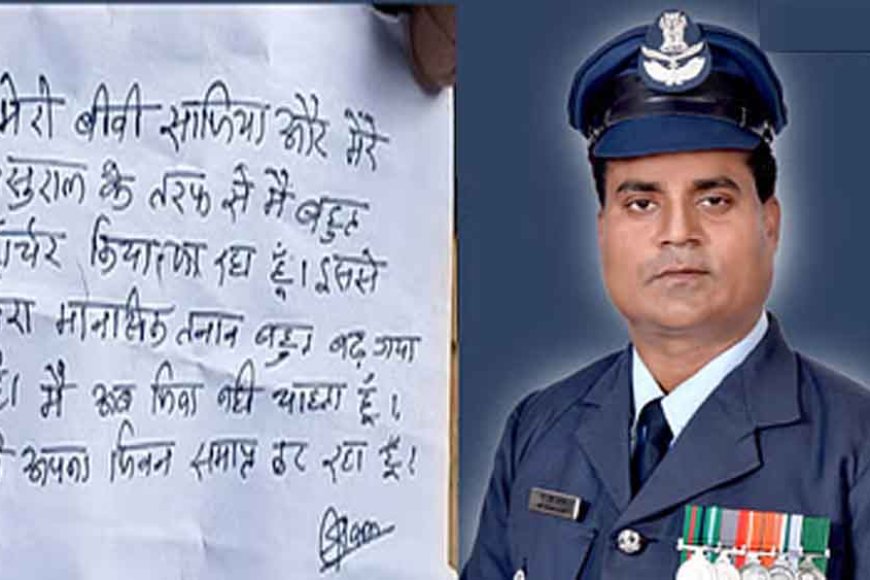 मेरी बीवी साफिया और मेरे
सुराल के तरफ से मै बहुत
र्चर किया जा रहा हूँ। इससे
रा मानसिक तनाव बहुत बढ़ गया
है। मै अब जिना नही चाहता हूँ।
अपना जिवन समाप्त कर रहा हूँ।